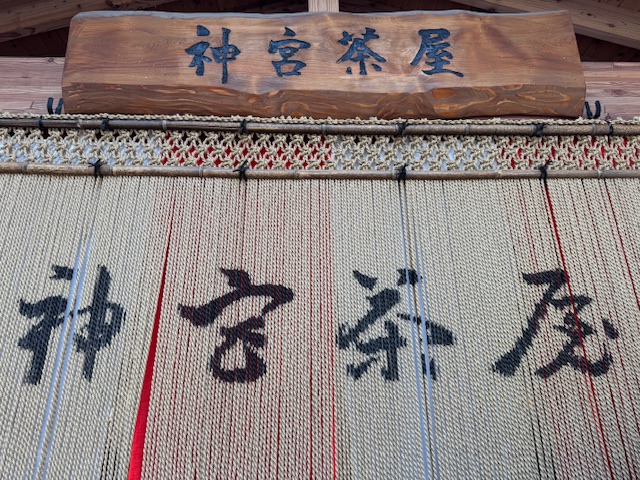 神宮茶屋
神宮茶屋